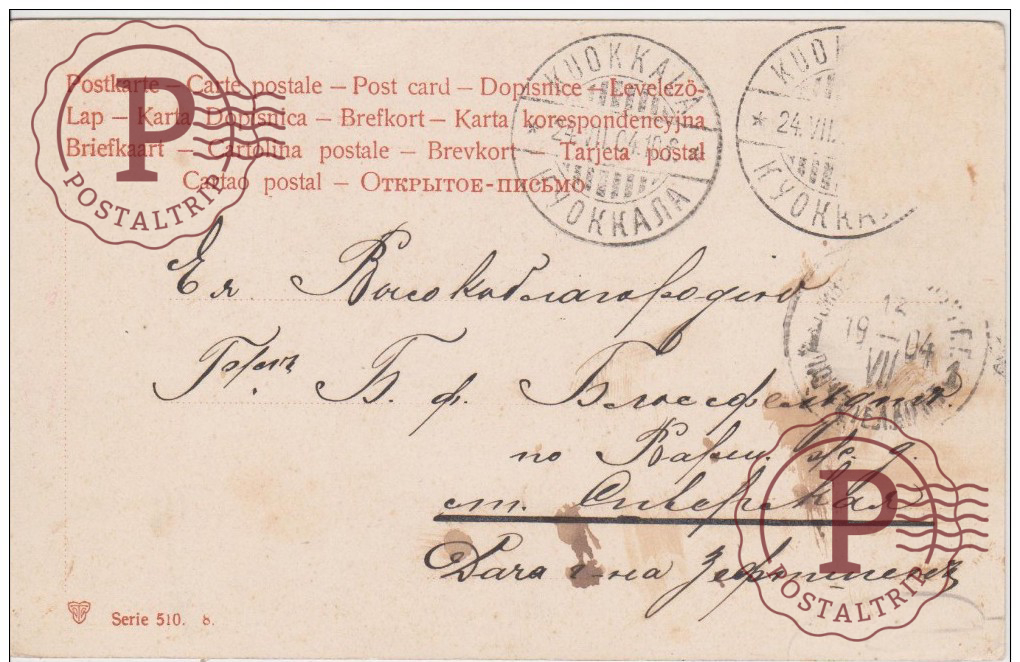 Postkarte – Carte postale – Post card – Dopisnice – Levelezö-
Lap – Karta Dopisnica – Brefkort – Karta korespondencyjna
Briefkaart – Cartolina postale – Brevkort – Tarjeta postal
Cartao postal – Открытое-письмо
KUOKKALA
* 24.VII.04.10
КУОККАЛА
KUOK
* 24.VII.
КУОККА
12
19 – 04
VII
POSTALTRIP
Ея Высокоблагородію
Б. ф. Блосфельдтъ.
по Варш. ж. д.
ст. Сиверская
Дача г-на
P
POSTALTRIP
Serie 510. 8.